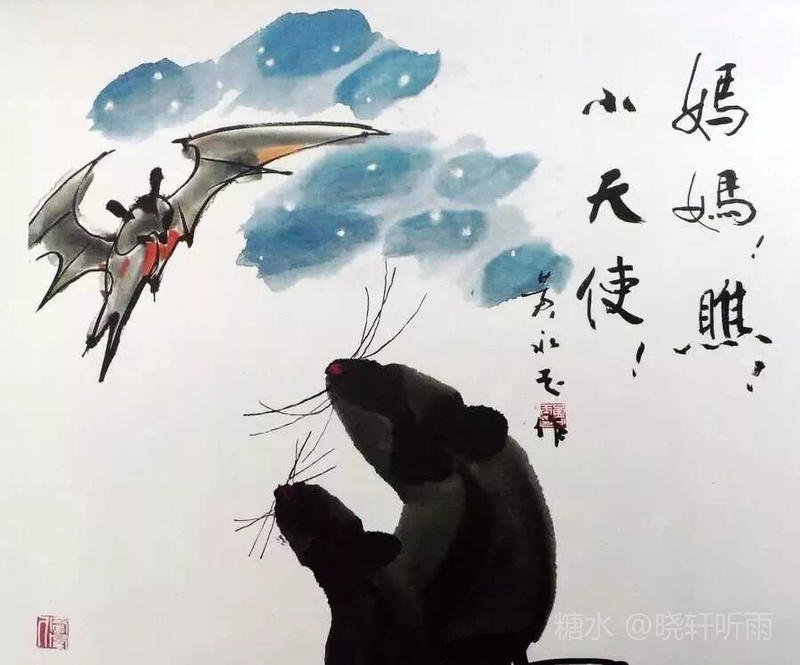 妈妈！瞧！
小天使！
黄永玉作
糖水 @晓轩听雨